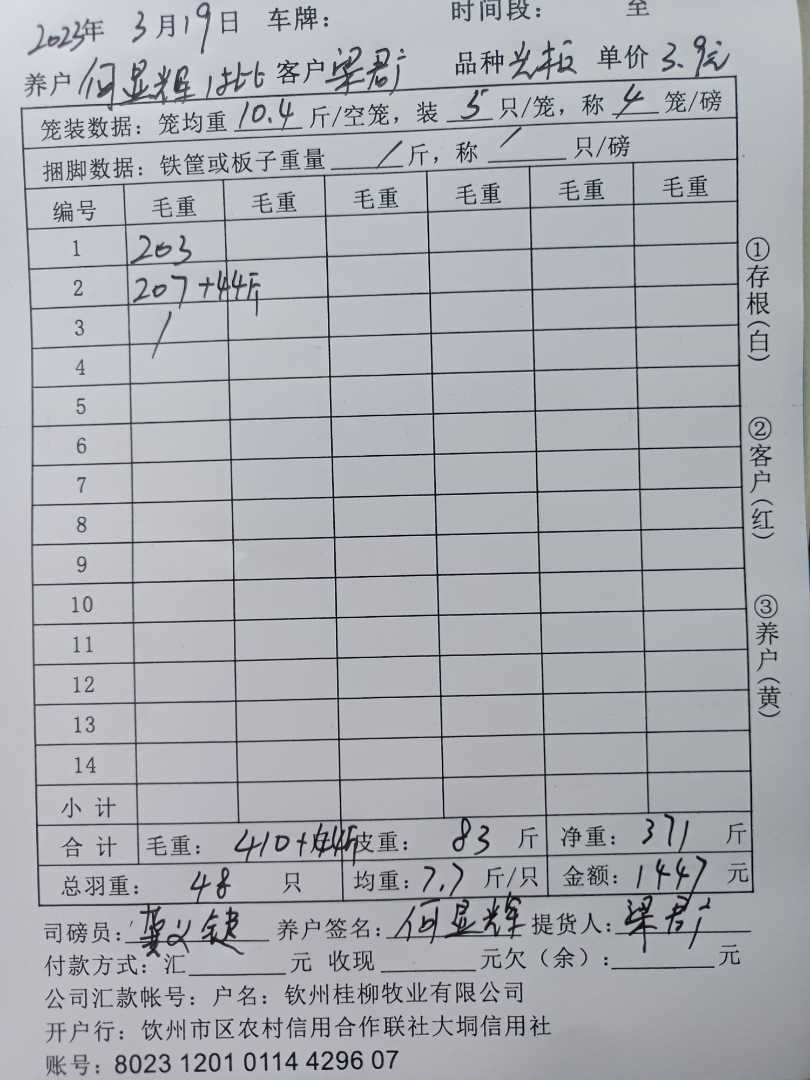 2023年 3月19日 车牌： 时间段： 至
养户 何显辉 客户 梁君广 品种 光板 单价 3.9元
笼装数据：笼均重 10.4 斤/空笼，装 5 只/笼，称 4 笼/磅
捆脚数据：铁筐或板子重量 / 斤，称 / 只/磅
编号 毛重 毛重 毛重 毛重 毛重 毛重
1 203
2 207+44斤
3 /
4
5
6
7
8
9
10
11
12
13
14
小 计
合 计 毛重： 410+44斤 皮重： 83 斤 净重： 371 斤
总羽重： 48 只 均重：7.7 斤/只 金额：1447 元
司磅员： 养户签名：何显辉 提货人：梁君广
付款方式：汇 元 收现 元欠（余）： 元
公司汇款帐号：户名：钦州桂柳牧业有限公司
开户行：饮州市区农村信用合作联社大垌信用社
账号：8023 1201 0114 4296 07
①存根（白）
②客户（红）
③养户（黄）